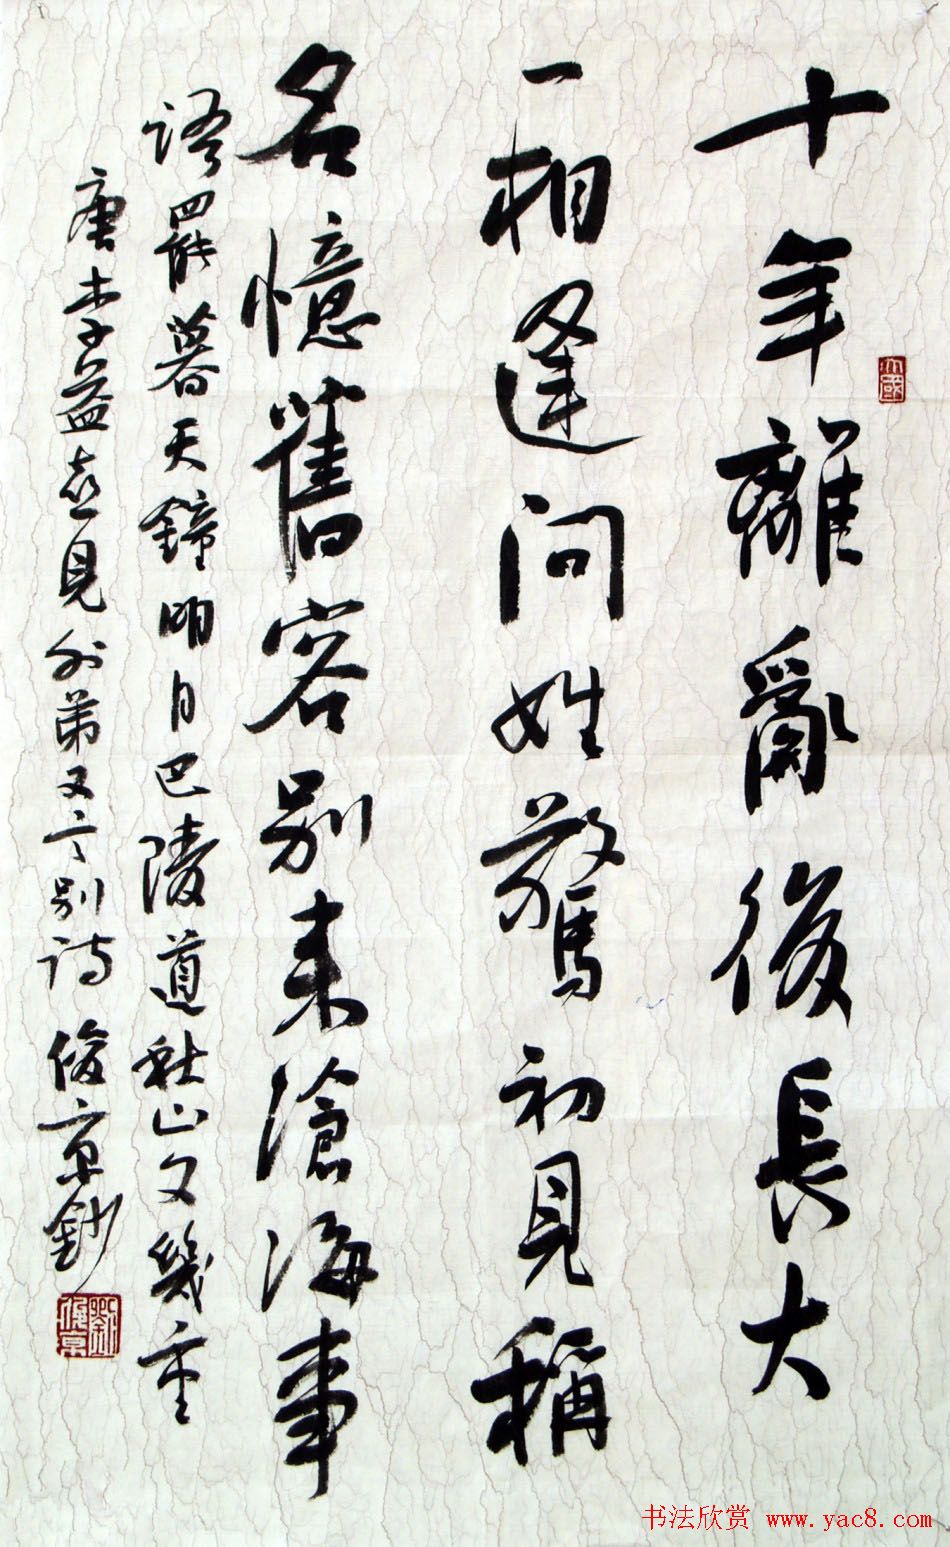 十年離亂後長大
一相逢問姓驚初見稱
名憶舊容別來滄海事
語罷暮天鐘明日巴陵道秋山又幾重
唐李益喜見外弟又言別詩 俊京鈔
劉俊京
书法欣赏 www.yac8.com